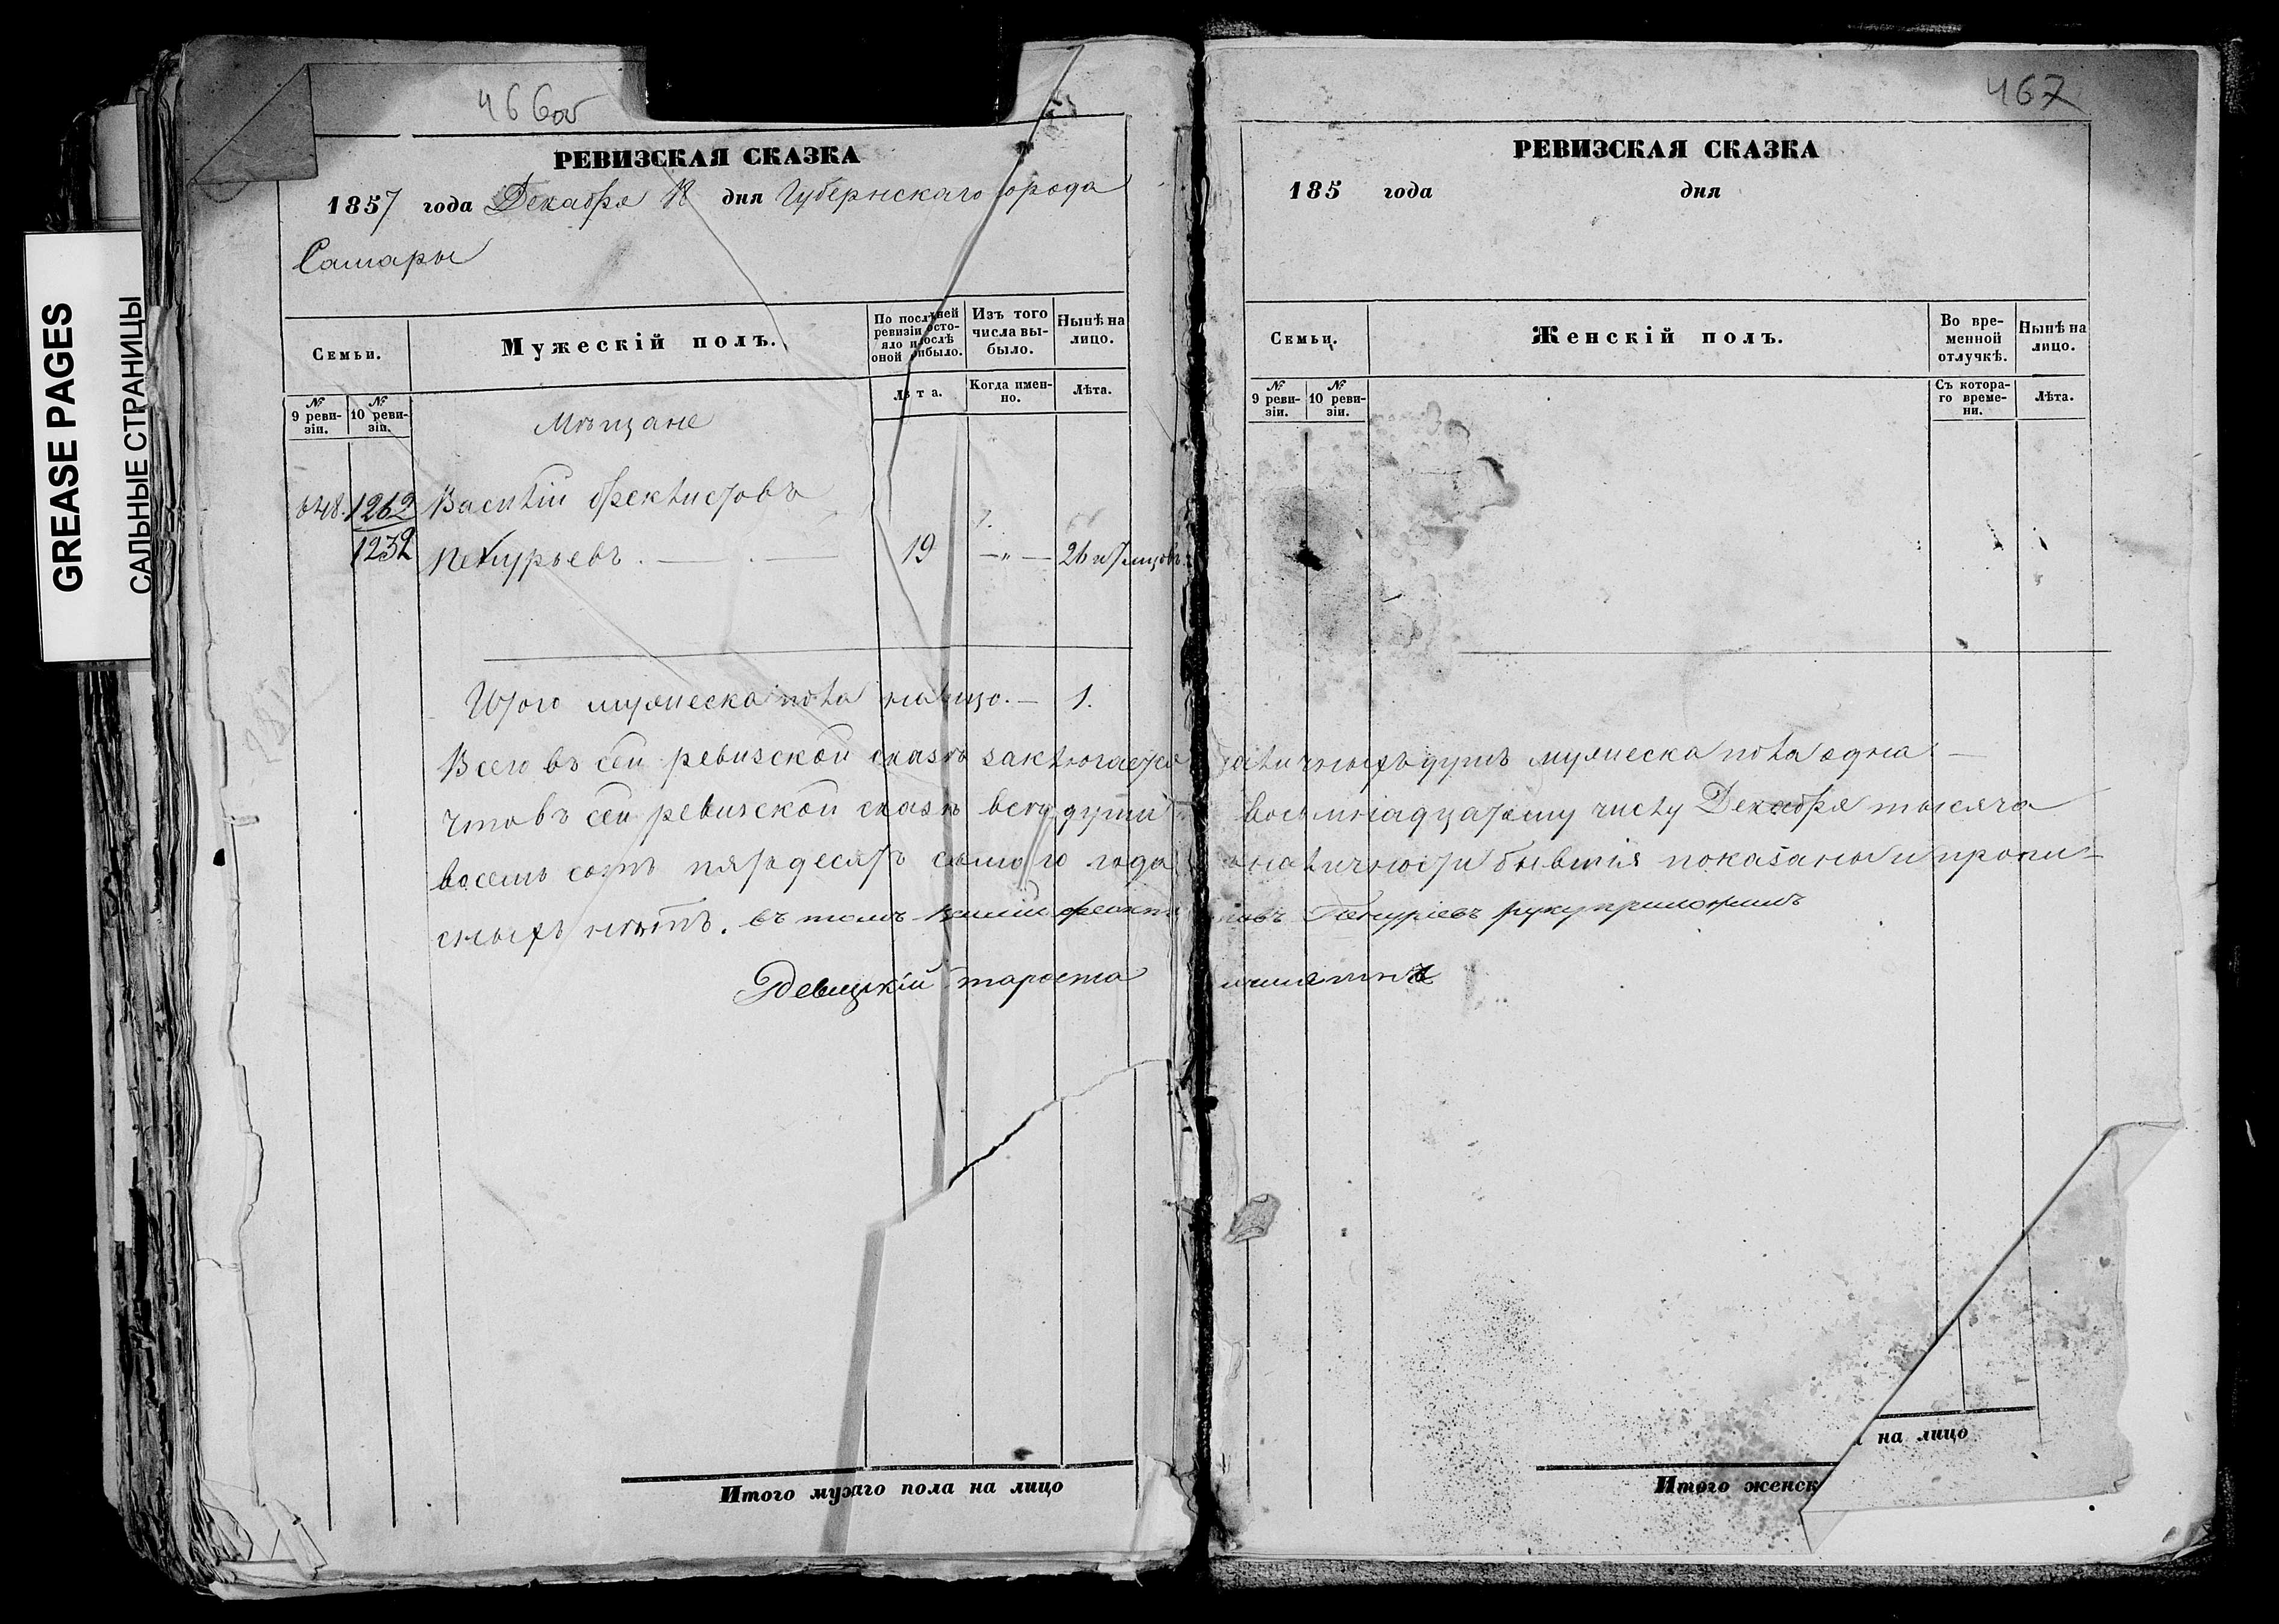 GREASE PAGES
САЛЬНЫЕ СТРАНИЦЫ
466об
РЕВИЗСКАЯ СКАЗКА
1857 года Декабря 18 дня Губернскаго города
Самары
Семьи.
Мужескій полъ.
По послѣдней ревизіи состояло и послѣ оной прибыло.
Изъ того числа выбыло.
Нынѣ на лицо.
№ 9 ревизіи.
№ 10 ревизіи.
Лѣта.
Когда именно.
Лѣта.
Мѣщане
648. 1262 Василій Феклистовъ
1232 Пекурьевъ. — 19 — „ — 26 и 7 мцовъ.
Итого мужеска пола на лицо. — 1.
Всего въ сей ревизской сказкѣ заключается
что въ сей ревизской сказкѣ всѣ души
восемь сотъ пятьдесятъ седьмого года
сныхъ нѣтъ. въ томъ
староста
Итого мужаго пола на лицо
467
РЕВИЗСКАЯ СКАЗКА
185 года дня
Семьи.
Женскій полъ.
Во временной отлучкѣ.
Нынѣ на лицо.
№ 9 ревизіи.
№ 10 ревизіи.
Съ котораго времени.
Лѣта.
наличныхъ душъ мужеска пола одна —
восьмнадцатому числу Декабря тысяча
по наличности бывшія показаны и пропи=
руку приложилъ
Итого женск
на лицо